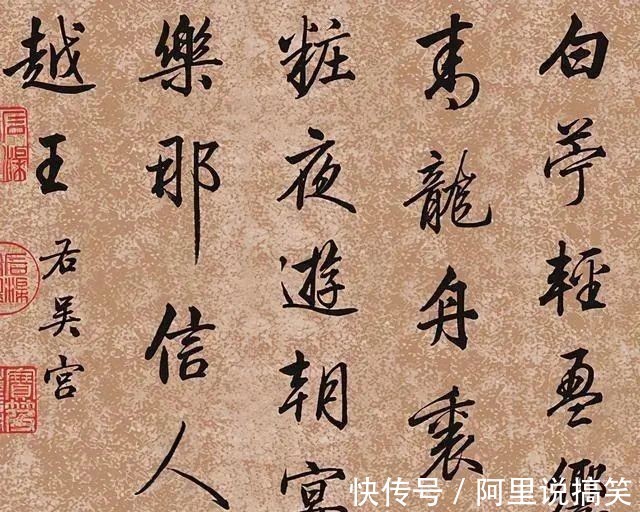 白苧輕盈
青龍舟裏
粧夜遊朝宴
樂那信人
越王
右吳宮
快传号 / 阿里说搞笑